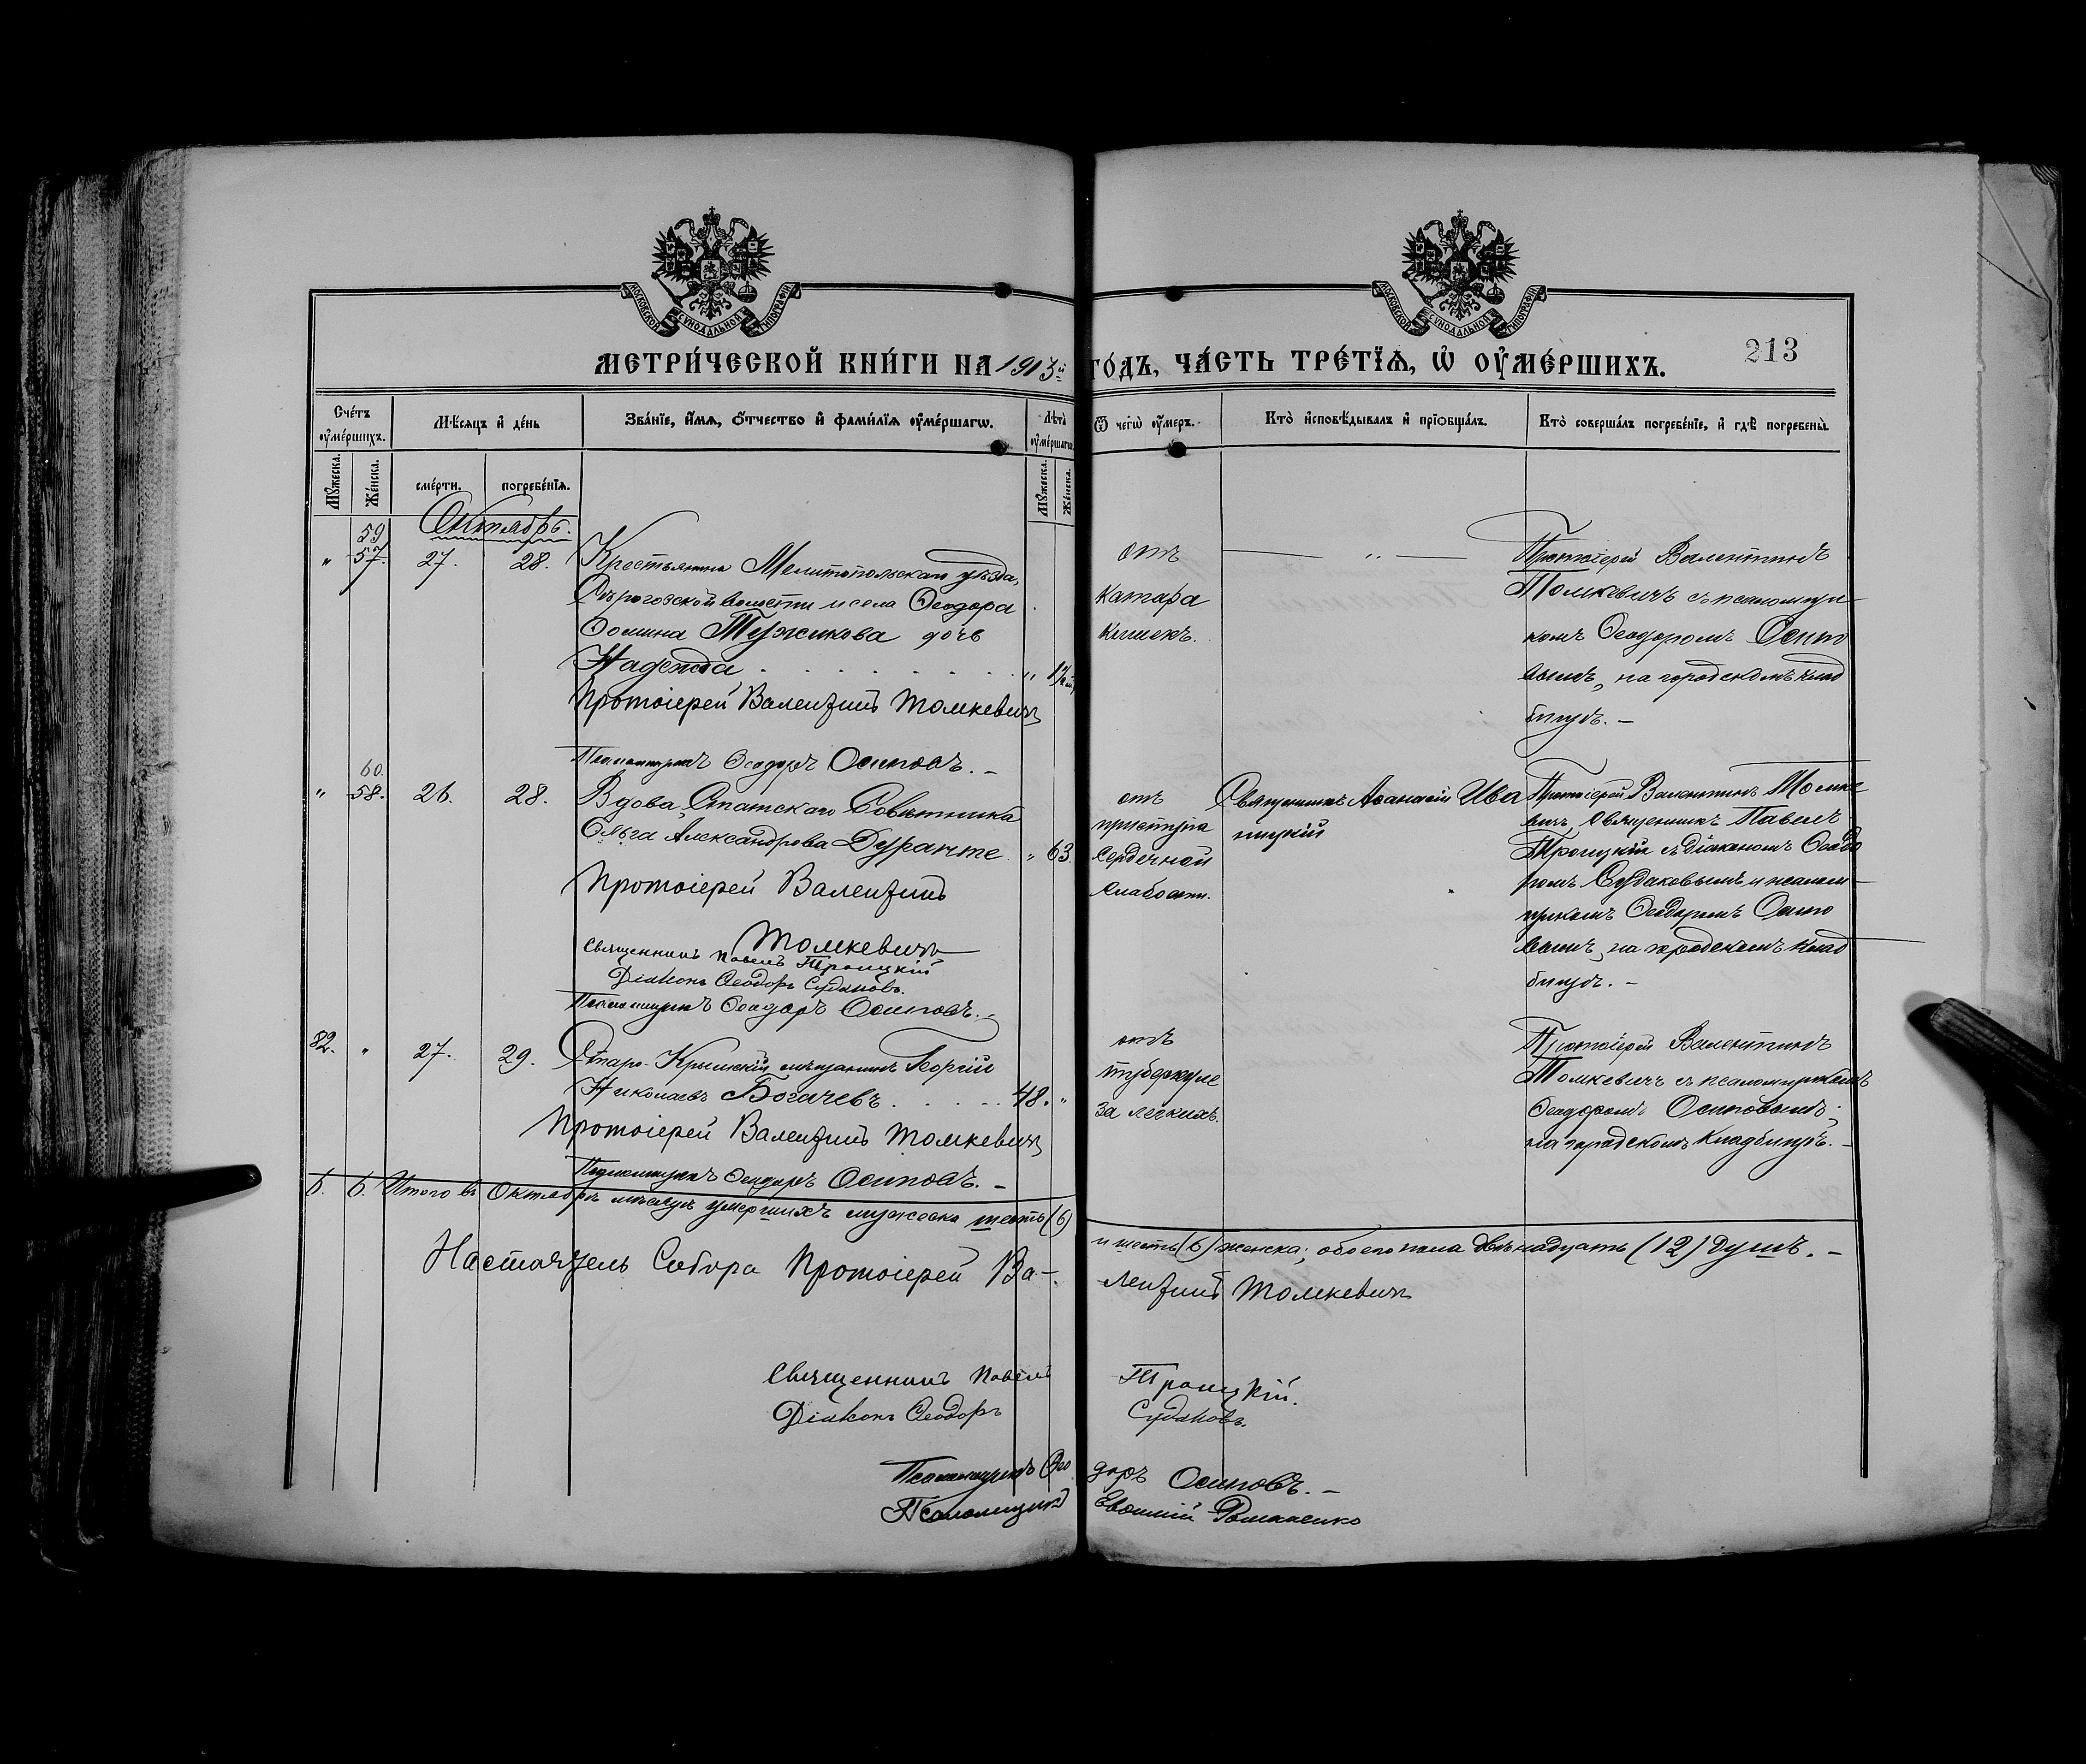 МОСКОВСКОЙ СУНОДАЛЬНОЙ ТИПОГРАФІИ
МОСКОВСКОЙ СУНОДАЛЬНОЙ ТИПОГРАФІИ
213
МЕТРИ́ЧЕСКОЙ КНИ́ГИ НА 1913й ГО́ДЪ, ЧА́СТЬ ТРЕ́ТІѦ, Ѡ҆ ОУ҆МЕ́РШИХЪ.
Сче́тъ оу҆ме́ршихъ.
Мѣ́сяцъ и҆ де́нь
Зва́нїе, и҆́мѧ, ѻ҆́тчество и҆ фами́лїѧ оу҆ме́ршагѡ.
Лѣ́та оу҆ме́ршагѡ
Ѿ чегѡ̀ оу҆́меръ.
Кто̀ и҆сповѣ́дывалъ и҆ прїѡбща́лъ.
Кто̀ соверша́лъ погребе́нїе, и҆ гдѣ̀ погребены̀.
Мꙋ́жеска.
Же́нска.
сме́рти.
погребе́нїѧ.
Мꙋ́жеска.
Же́нска.
Октябрь.
59
" 57. 27. 28. Крестьянина Мелитопольскаго уѣзда,
волости и села Ѳеодора
Ѳомина Тужикова дочь
Надежда . . . . . . "
Протоіерей Валентинъ Томкевичъ
Псаломщикъ Ѳеодоръ Осиповъ. –
отъ
катара
кишекъ.
— " —
Протоіерей Валентинъ
Томкевичъ съ псаломщи-
комъ Ѳеодоромъ Осипо
вымъ, на городскомъ клад
бищѣ. –
60.
" 58. 26. 28. Вдова Статскаго Совѣтника
Ольга Александрова Дуранте. " 63.
Протоіерей Валентинъ
Томкевичъ
Священникъ Павелъ Троицкій
Діаконъ Ѳеодоръ Судаковъ.
Псаломщикъ Ѳеодоръ Осиповъ. –
отъ
приступа
сердечной
слабости.
Священникъ Аѳанасій Ива
ницкій
Протоіерей Валентинъ Томке
вичъ Священникъ Павелъ
Троицкій съ діакономъ Ѳеодо
ромъ Судаковымъ и псалом-
щикомъ Ѳеодоромъ Осипо
вымъ, на городскомъ клад
бищѣ. –
82. " 27. 29. Старо-Крымскій мѣщанинъ Георгій
Николаевъ Богачевъ . . . . . 48. "
Протоіерей Валентинъ Томкевичъ
Псаломщикъ Ѳеодоръ Осиповъ. –
отъ
туберкуле
за легкихъ.
Протоіерей Валентинъ
Томкевичъ съ псаломщикомъ
Ѳеодоромъ Осиповымъ;
на городскомъ кладбищѣ. –
6. 6. Итого въ Октябрѣ мѣсяцѣ умершихъ мужеска шесть (6)
и шесть (6) женска; обоего пола двѣнадцать (12) душъ. –
Настоятель Собора Протоіерей Ва-
лентинъ Томкевичъ
Священникъ Павелъ Троицкій.
Діаконъ Ѳеодоръ Судаковъ.
Псаломщикъ Ѳео доръ Осиповъ. –
Псаломщикъ Евѳимій Романенко